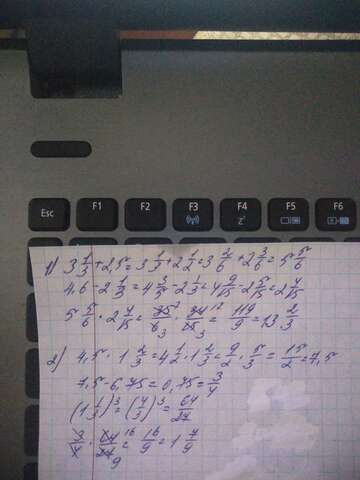 Esc F1 F2 F3 F4 F5 F6
1) 3 1/3 + 2,5 = 3 1/3 + 2 1/2 = 3 2/6 + 2 3/6 = 5 5/6
4,6 - 2 1/3 = 4 3/5 - 2 1/3 = 4 9/15 - 2 5/15 = 2 4/15
2) 4,5 · 1 2/3 = 4 1/2 · 1 2/3 = 9/2 · 5/3 = 15/2 = 7,5
7,5 - 6,75 = 0,75 = 3/4
(1 1/3)^3 = (4/3)^3 = 64/27
3/4 · 64/27 = 16/9 = 1 7/9